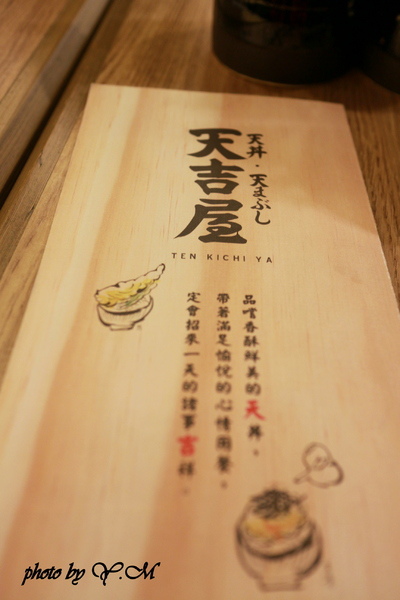 天丼・天まぶし
天吉屋
TEN KICHI YA
品嚐香酥鮮美的天丼，
帶著滿足愉悅的心情用餐，
定會招來一天的諸事吉祥。
photo by Y.M